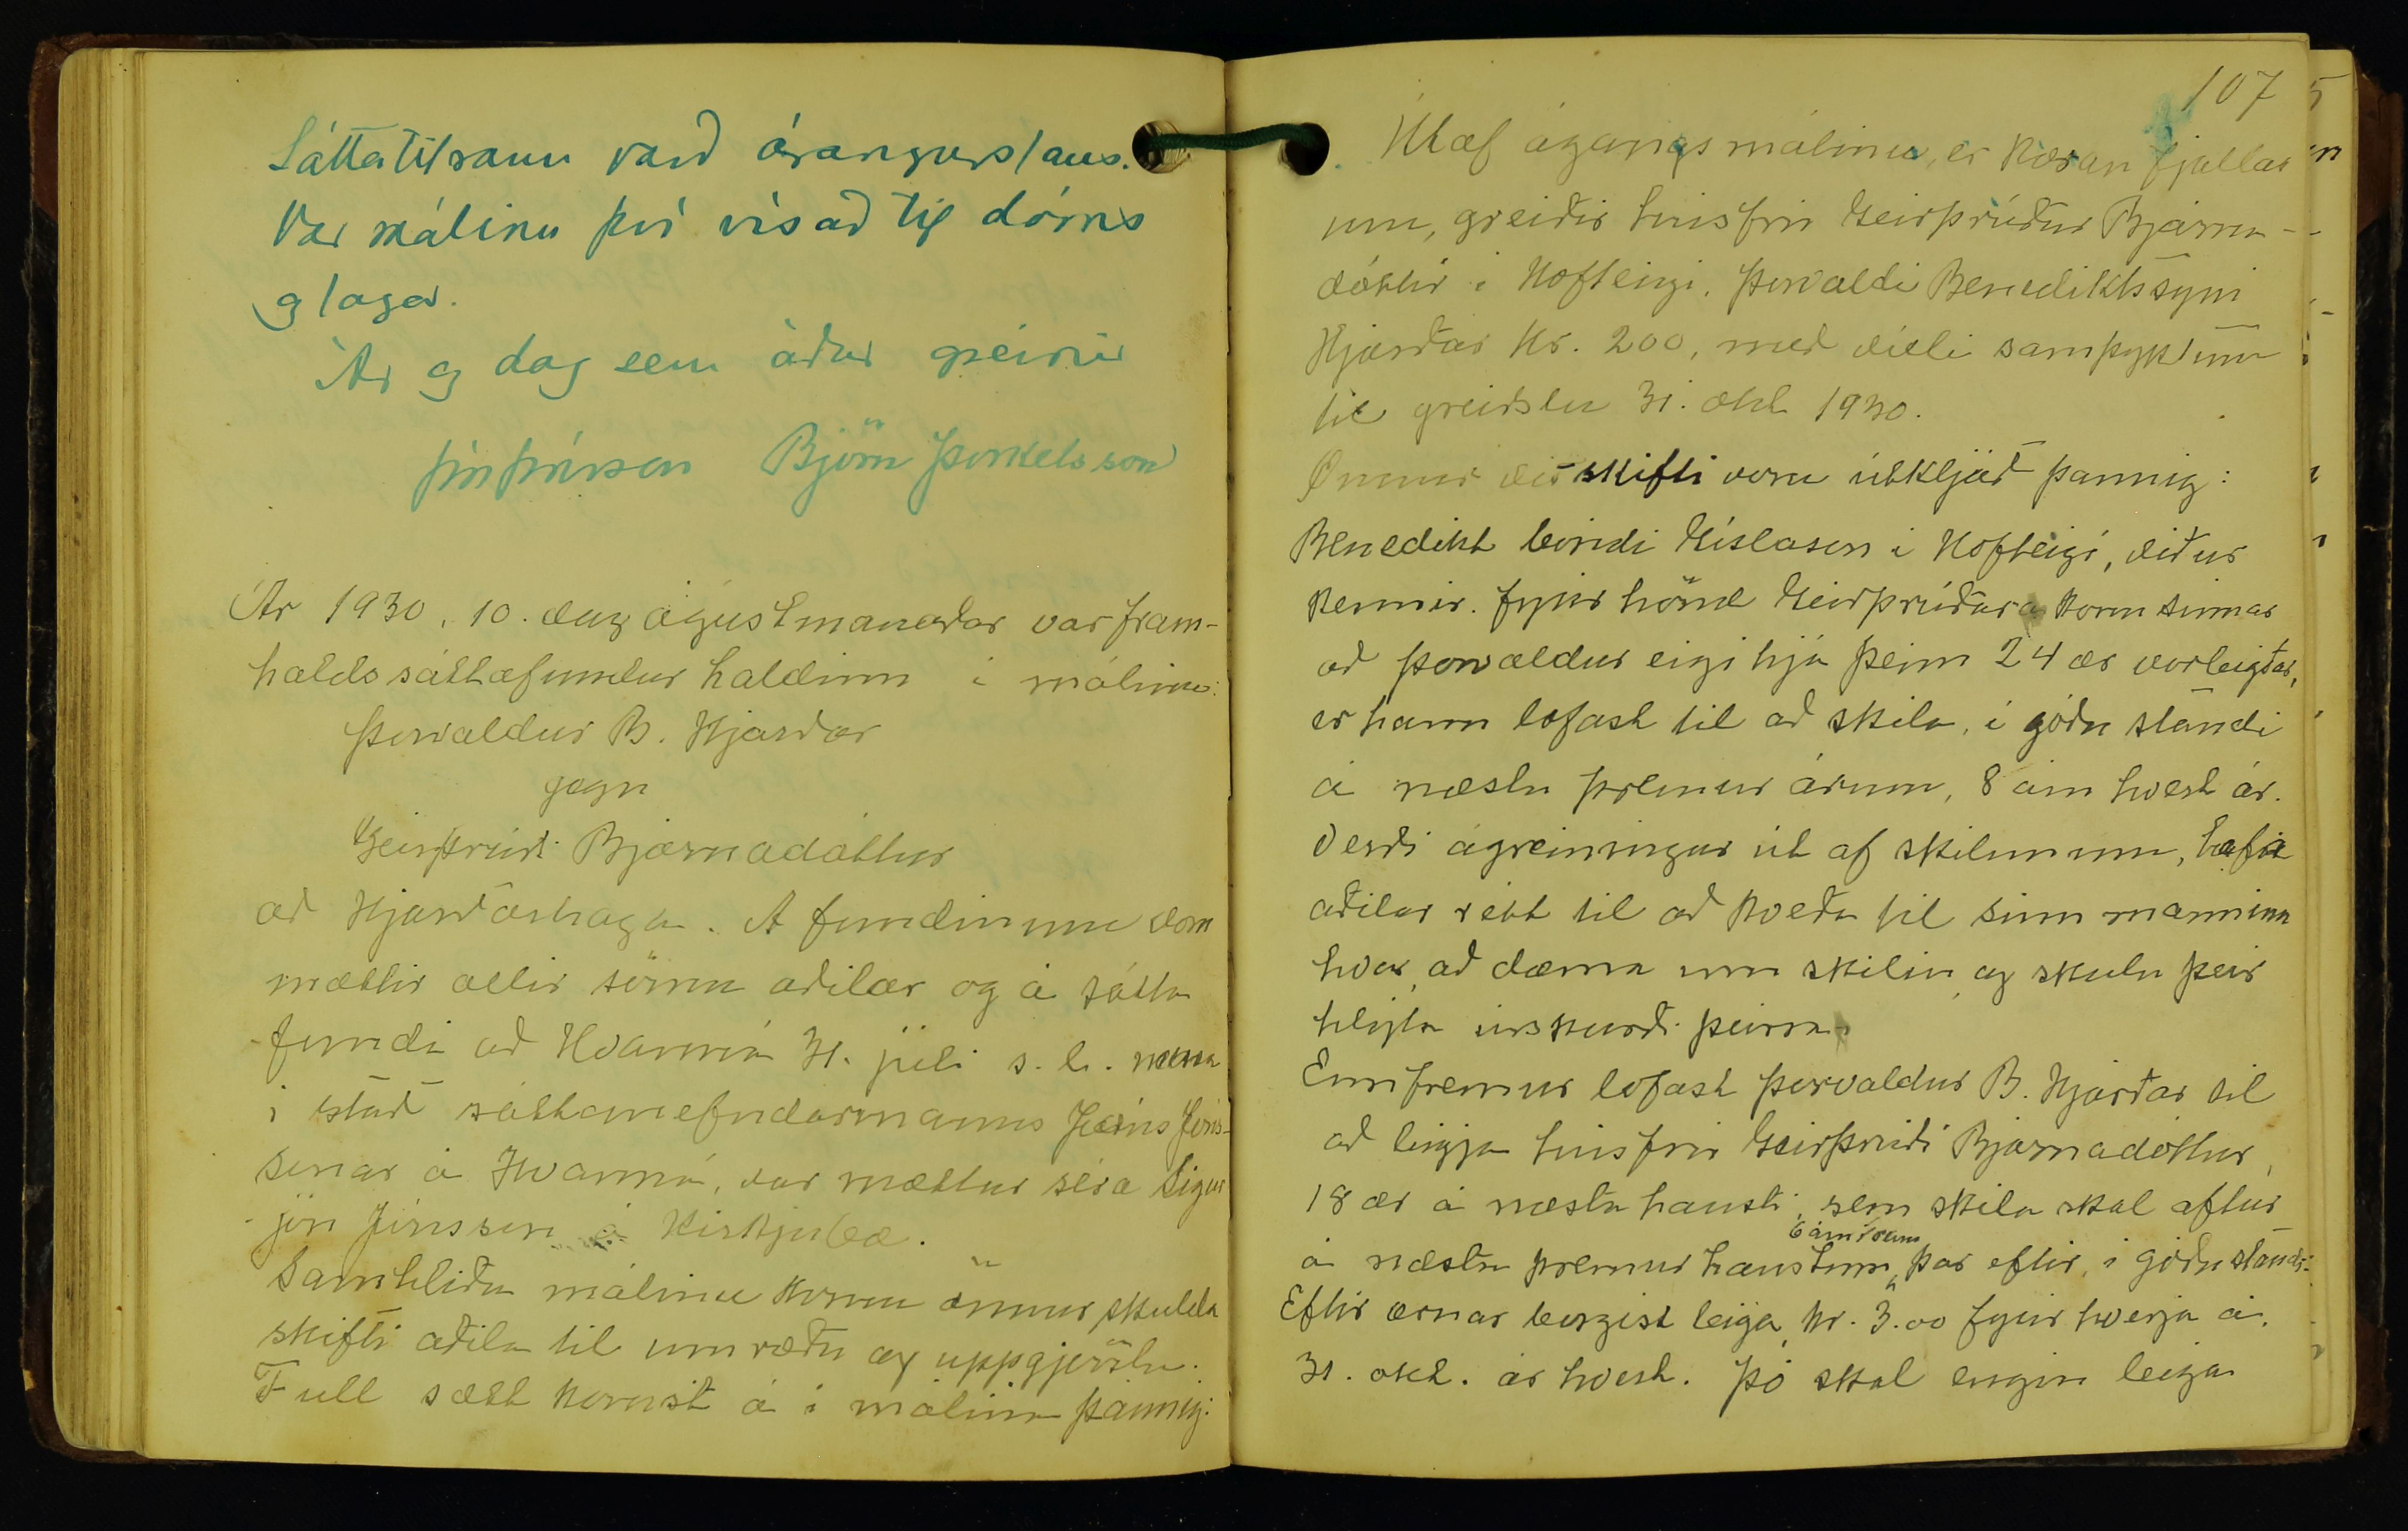 Sáttatilraun varð árangurslaus.
Var málinu því vísað til dóms
og laga.
Ár og dag sem áður greinir
Jón Jónsson Björn Þorkelsson
Ár 1930, 10. dag ágústmanaðar var fram-
halds sáttafundur haldinn í málinu:
Þorvaldur B. Hjarðar
gegn
Geirþrúði Bjarnadóttur
að Hjarðarhaga. Á fundinum voru
mættir allir sömu aðilar og á sátta
fundi að Hvanná 31. júlí s.l. nema
í stað sáttanefndarmanns Jóns Jóns-
sonar á Hvanná, var mættur séra Sigur
jón Jónsson á Kirkjubæ.
Samhliða málinu komu önnur skulda
skifti aðila til umræðu og uppgjörslu.
Full sætt komst á í málinu þannig:
107
Útaf ágangsmálinu, er kæran fjallar
um, greiðir húsfrú Geirþrúður Bjarna-
dóttir í Hofteigi, Þorvaldi Benediktssyni
Hjarðar Kr. 200, með víxli samþyktum
til greiðslu 31. okt. 1930.
Önnur viðskifti voru útkljáð þannig:
Benedikt bóndi Gíslason í Hofteigi, viður
kennir fyrir hönd Geirþrúðar konu sinnar
að Þorvaldur eigi hjá þeim 24 ær vorleigðar,
er hann lofast til að skila, í góðu standi
á næstu þremur árum, 8 ám hvert ár.
Verði ágreiningur út af skilunum, hafa
aðilar rétt til að kveða til sinn manninn
hvor, að dæma um skilin og skulu þeir
hlýta úrskurði þeirra.
Ennfremur lofast Þorvaldur B. Hjarðar til
að byggja húsfrú Geirþrúði Bjarnadóttur,
18 ær á næsta hausti, sem skila skal aftur
6 ám í senn
á næstu þremur haustum, þar eftir, í góðu standi.
Eftir ærnar borgist leiga kr. 3.00 fyrir hverja á,
31. okt. ár hvert. Þó skal engin leiga